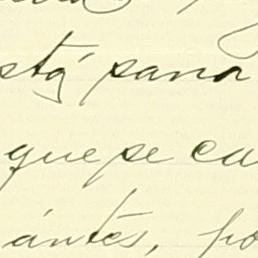 stá para
que se ca
ántes, po